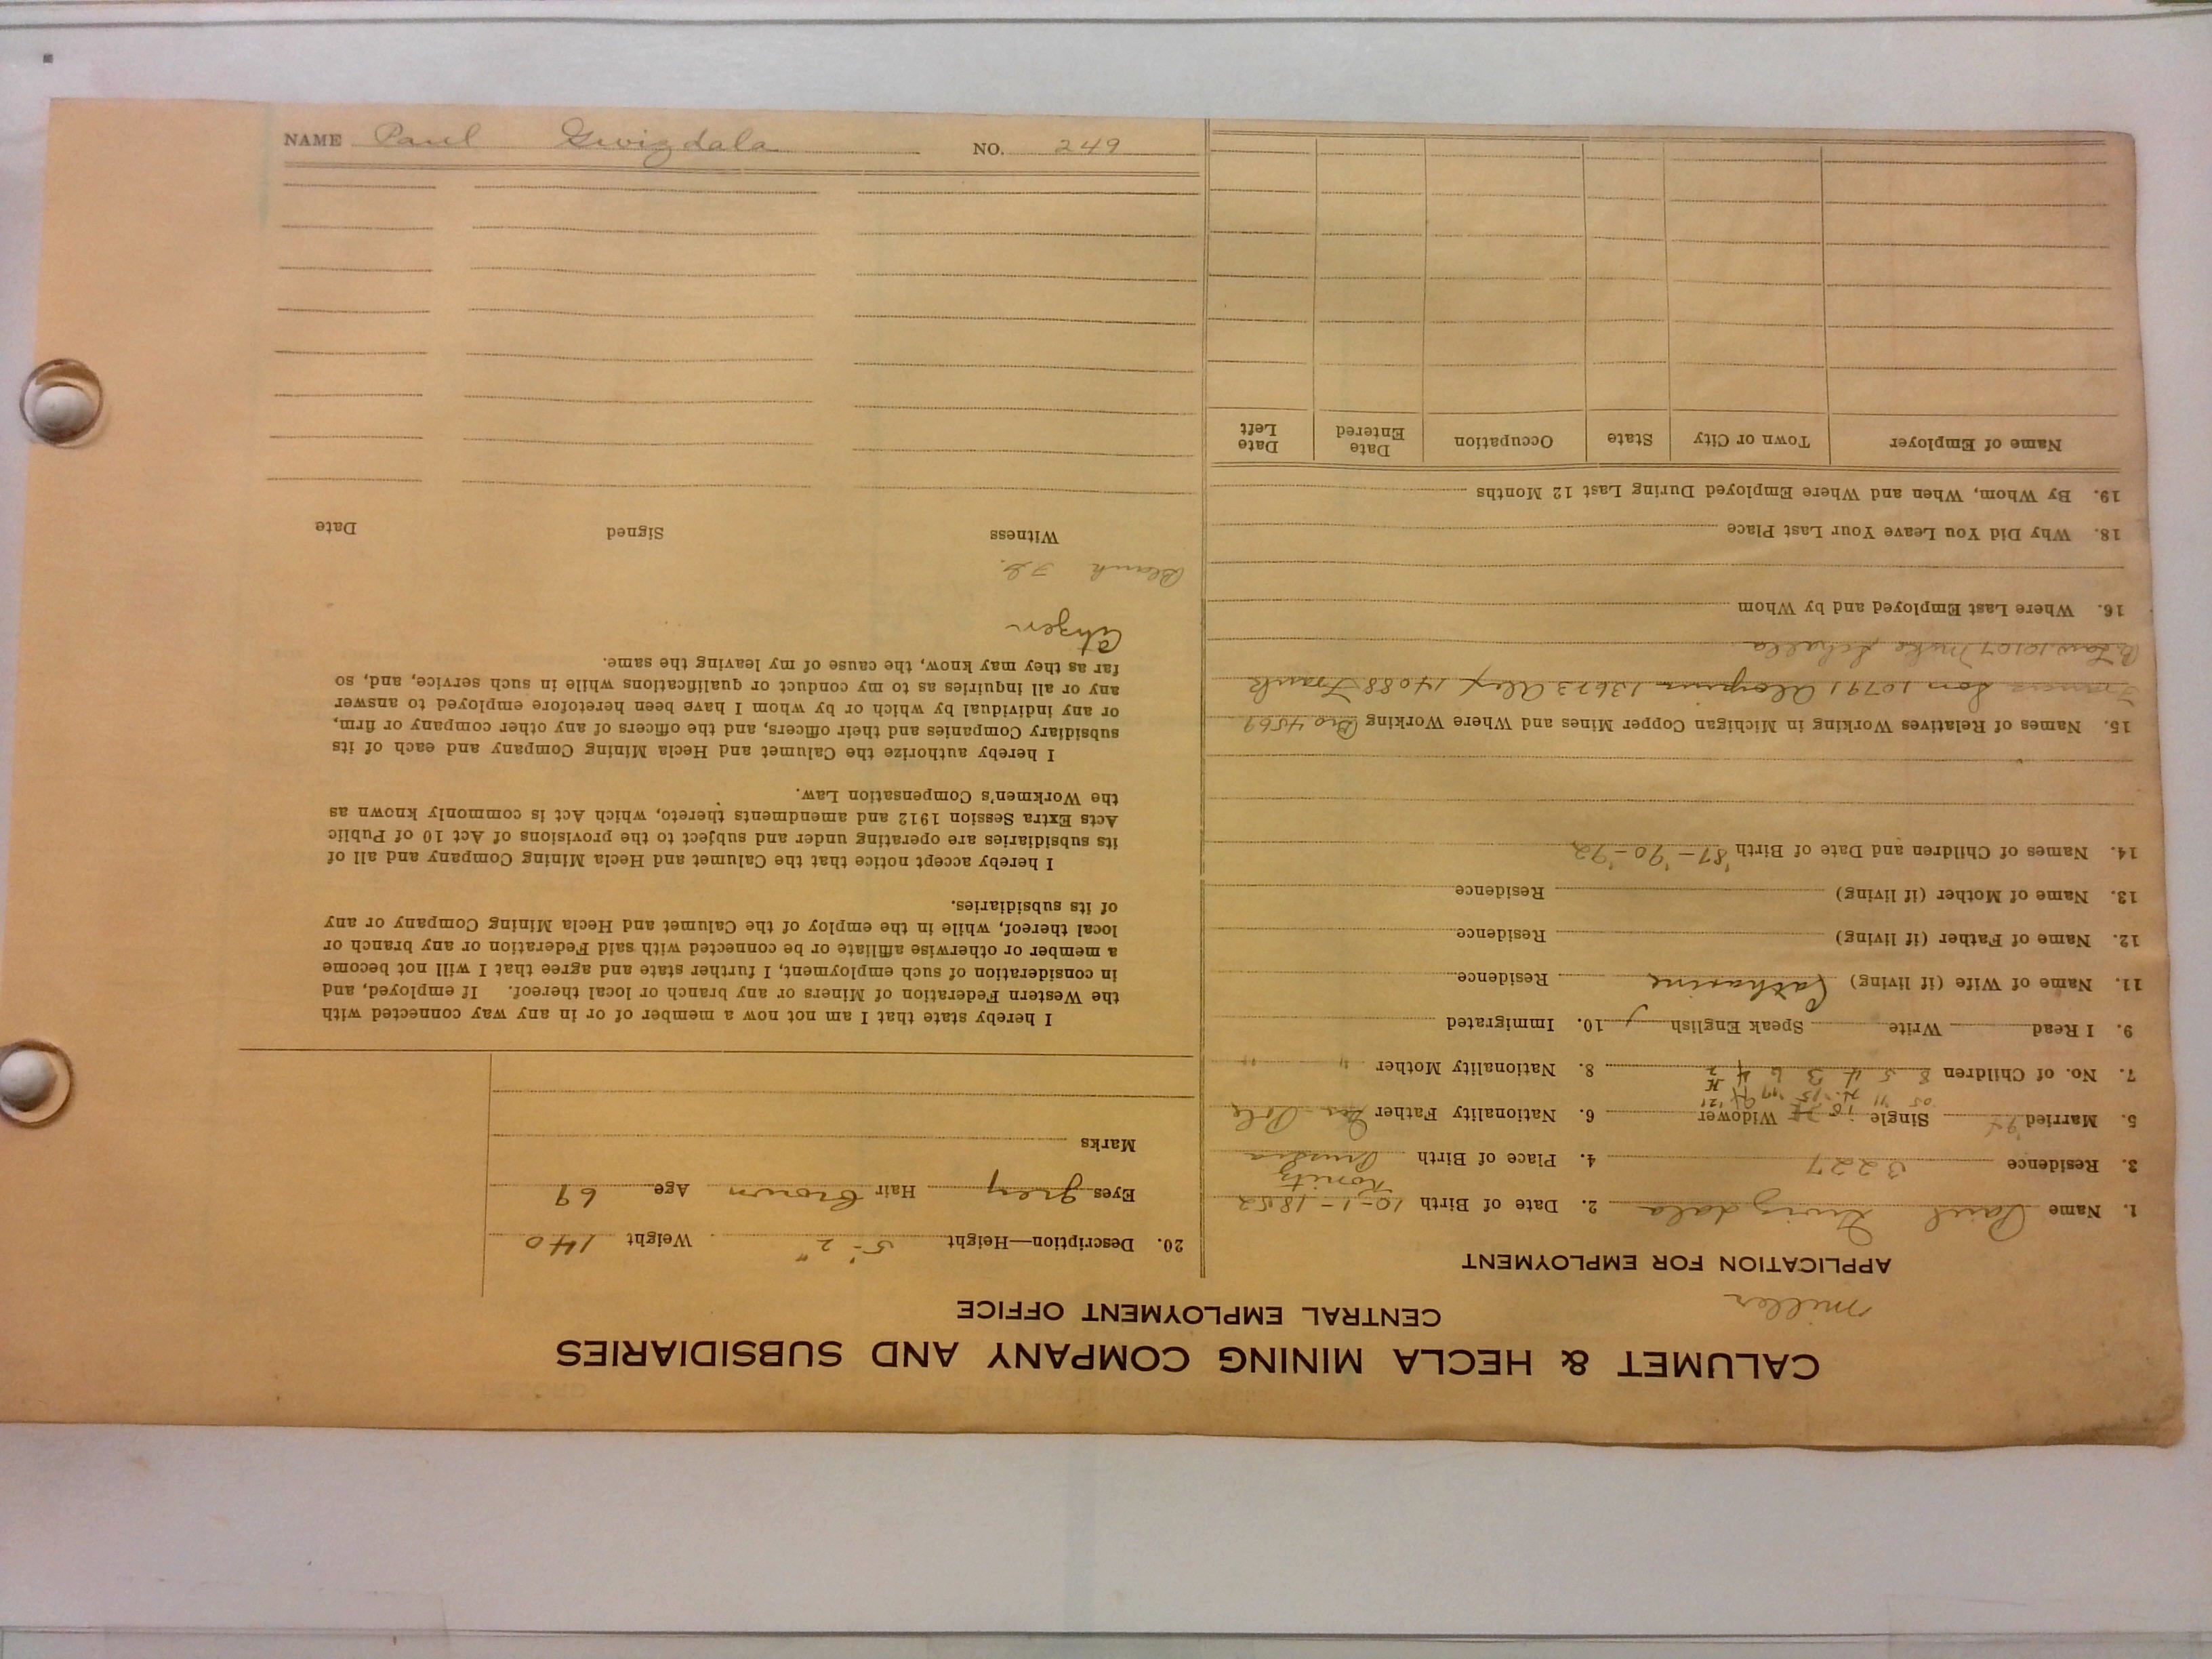 NAME Paul Gwizdala NO. 249
CALUMET & HECLA MINING COMPANY AND SUBSIDIARIES
CENTRAL EMPLOYMENT OFFICE
Miller
APPLICATION FOR EMPLOYMENT
1. Name Paul Gwizdala 2. Date of Birth 10-1-1852
Konitz
3. Residence 3227 4. Place of Birth Prussia
5. Married Single Widower 6. Nationality Father Ger Pole
05 11
7. No. of Children 8 5 4 3 6 4 2 8. Nationality Mother " "
9. I Read Write Speak English 10. Immigrated
11. Name of Wife (if living) Catharine Residence
12. Name of Father (if living) Residence
13. Name of Mother (if living) Residence
14. Names of Children and Date of Birth '87-'90-'92
15. Names of Relatives Working in Michigan Copper Mines and Where Working Bro 4569
Son 10791 13673 Alex 14088 Frank
10107 Mike
16. Where Last Employed and by Whom
18. Why Did You Leave Your Last Place
19. By Whom, When and Where Employed During Last 12 Months
Name of Employer Town or City State Occupation Date Entered Date Left
20. Description—Height 5'-2" Weight 140
Eyes grey Hair Brown Age 69
Marks
I hereby state that I am not now a member of or in any way connected with
the Western Federation of Miners or any branch or local thereof. If employed, and
in consideration of such employment, I further state and agree that I will not become
a member or otherwise affiliate or be connected with said Federation or any branch or
local thereof, while in the employ of the Calumet and Hecla Mining Company or any
of its subsidiaries.
I hereby accept notice that the Calumet and Hecla Mining Company and all of
its subsidiaries are operating under and subject to the provisions of Act 10 of Public
Acts Extra Session 1912 and amendments thereto, which Act is commonly known as
the Workmen's Compensation Law.
I hereby authorize the Calumet and Hecla Mining Company and each of its
subsidiary Companies and their officers, and the officers of any other company or firm,
or any individual by which or by whom I have been heretofore employed to answer
any or all inquiries as to my conduct or qualifications while in such service, and, so
far as they may know, the cause of my leaving the same.
Citizen
Witness Signed Date